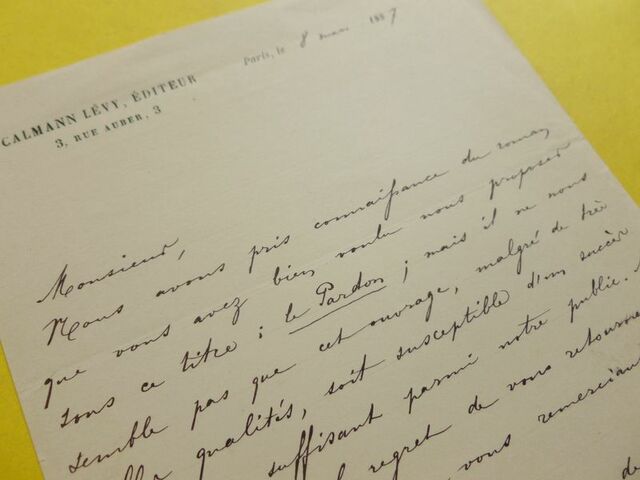 Paris, le 8 mars 1887
CALMANN LÉVY, ÉDITEUR
3, RUE AUBER, 3
Monsieur,
Nous avons pris connaissance du roman,
que vous avez bien voulu nous proposer
sous ce titre : le Pardon ; mais il ne nous
semble pas que cet ouvrage, malgré de très
qualités, soit susceptible d'un succès
suffisant parmi notre public.
regret de vous retourner
vous remerciant
de